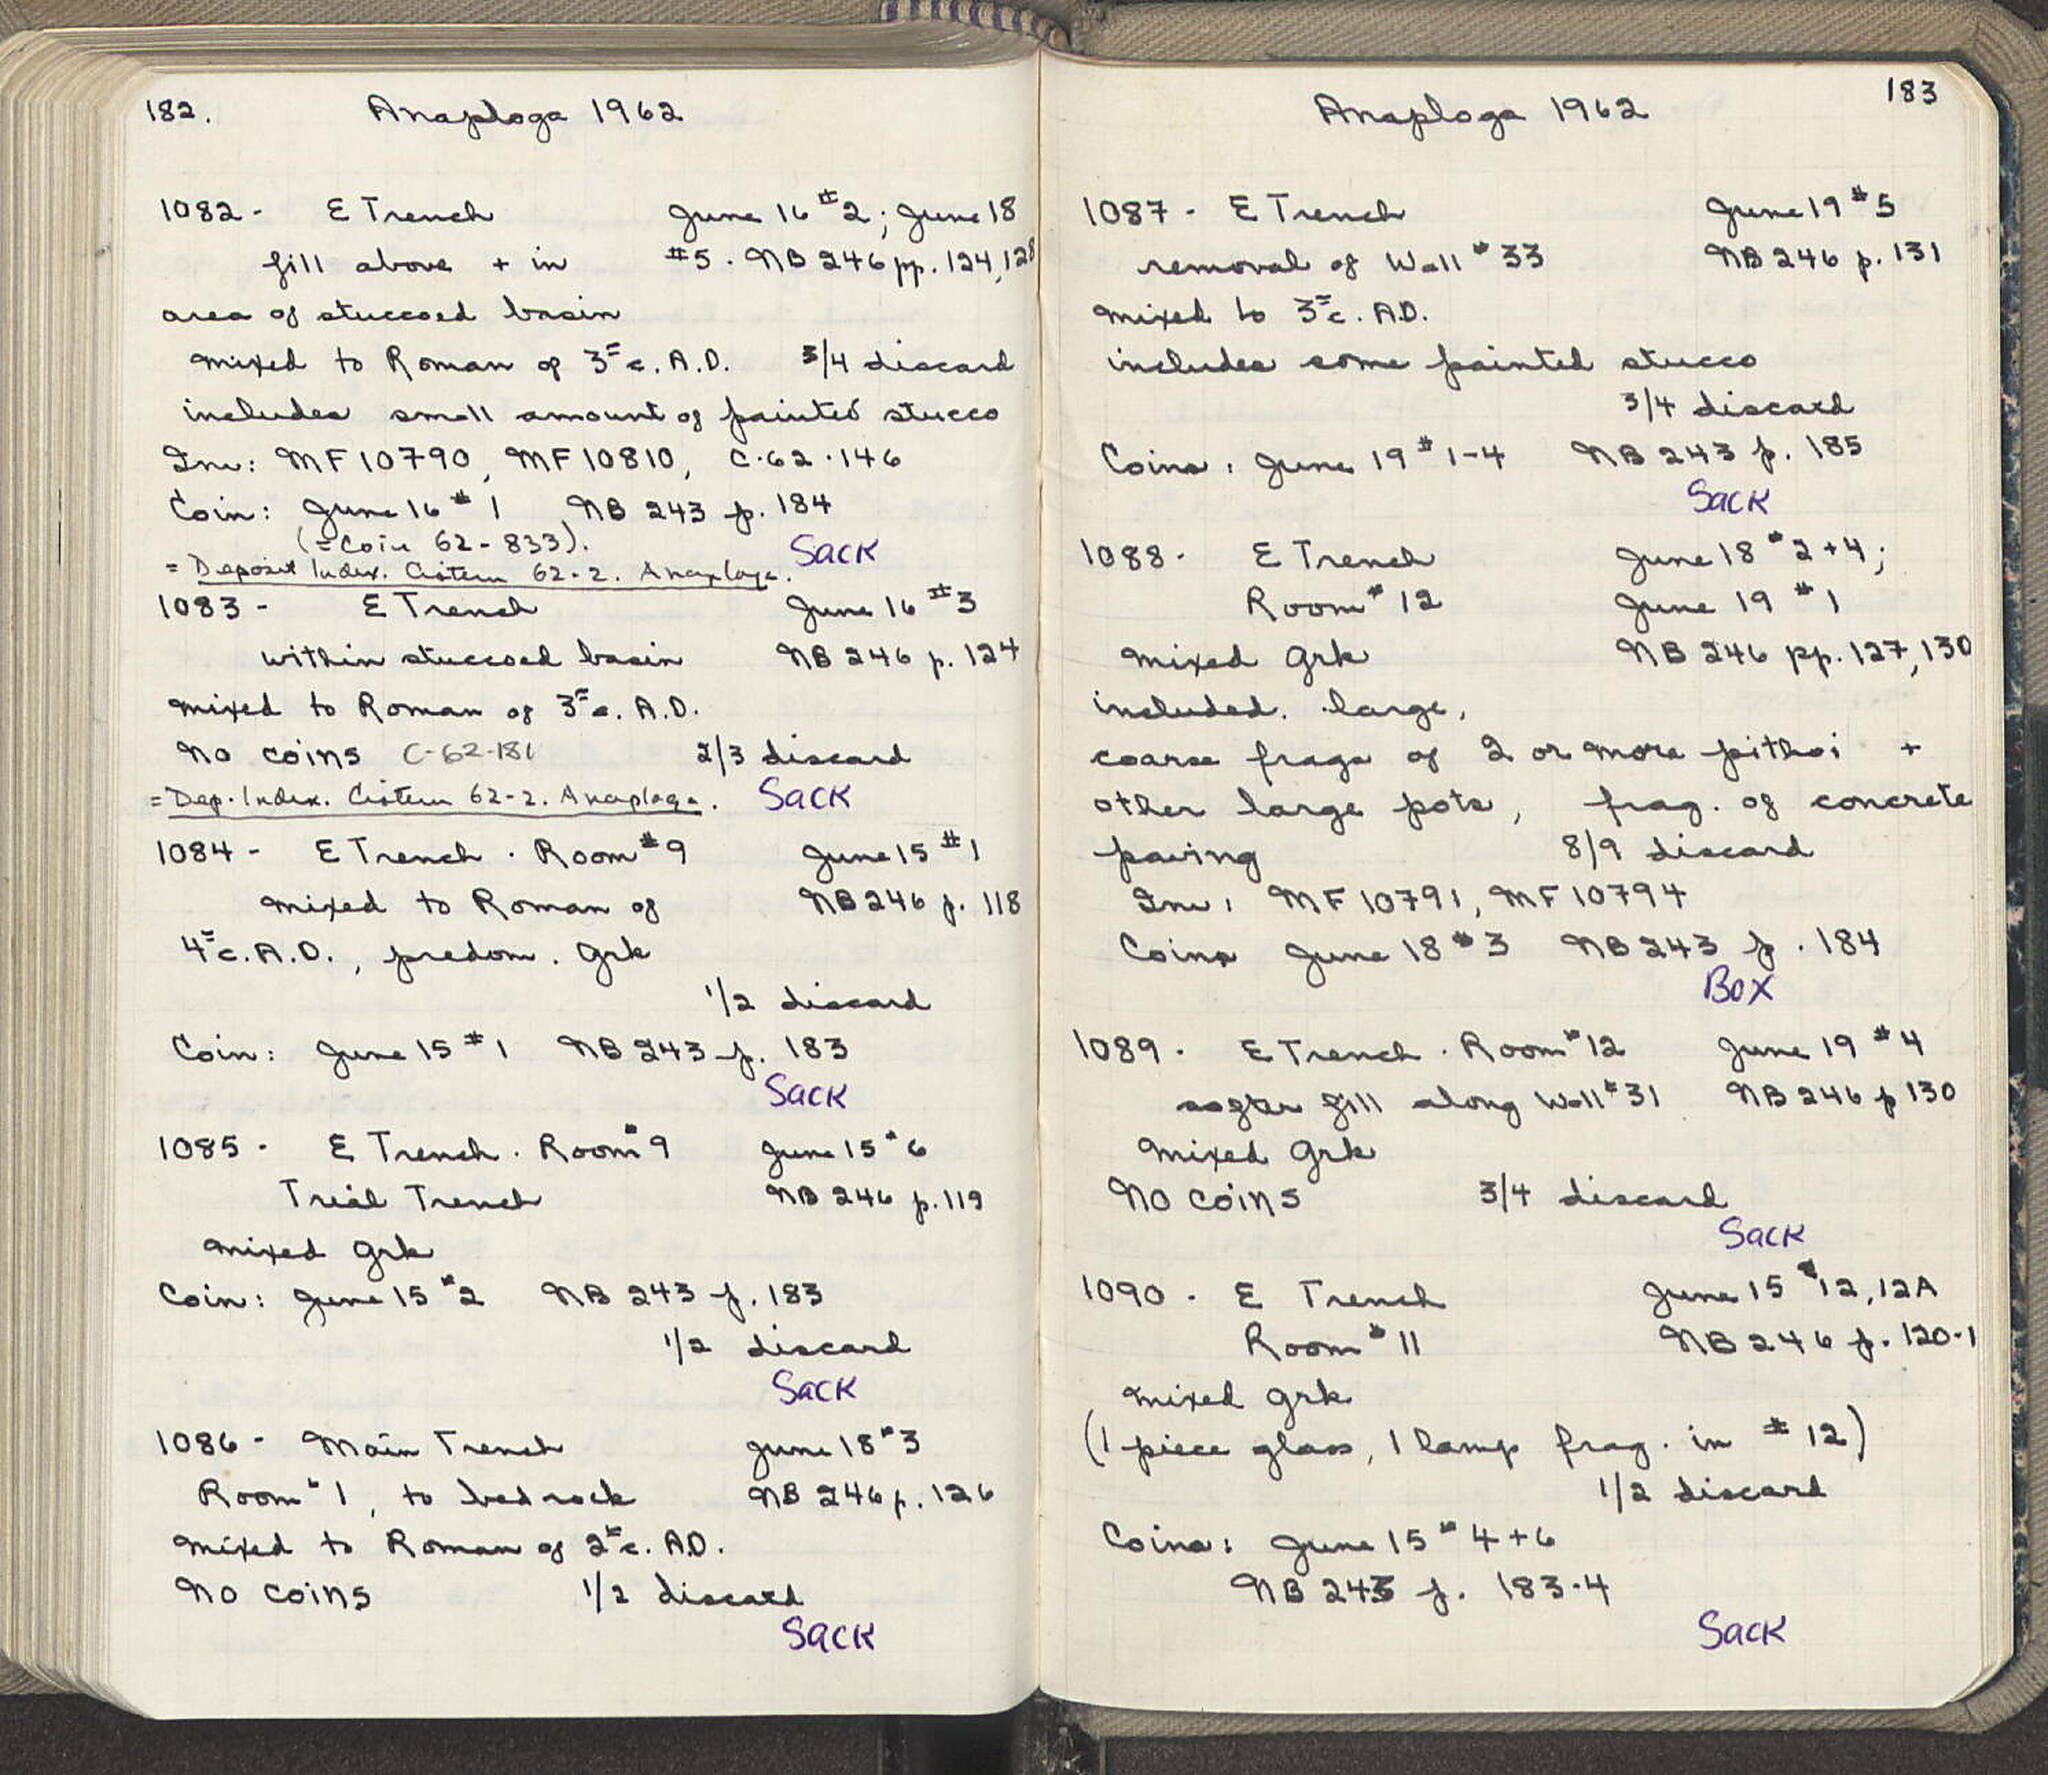 182.
Anaploga 1962
1082 - E Trench June 16 #2; June 18
fill above + in #5. NB 246 pp. 124, 128
area of stuccoed basin
mixed to Roman of 3= c. A.D. 3/4 discard
includes small amount of painted stucco
Inv: MF 10790, MF 10810, C·62·146
Coin: June 16 #1 NB 243 p. 184
(= Coin 62-833).
Sack
= Deposit Index. Cistern 62-2. Anaploga.
1083 - E Trench June 16 #3
within stuccoed basin NB 246 p. 124
mixed to Roman of 3= c. A.D.
No coins C-62-181 2/3 discard
= Dep. Index. Cistern 62-2. Anaploga. Sack
1084 - E Trench · Room #9 June 15 #1
mixed to Roman of NB 246 p. 118
4= c. A.D., predom. Grk
1/2 discard
Coin: June 15 #1 NB 243 p. 183
Sack
1085 - E Trench · Room #9 June 15 #6
Trial Trench NB 246 p. 119
mixed Grk
Coin: June 15 #2 NB 243 p. 183
1/2 discard
Sack
1086 - Main Trench June 18 #3
Room #1, to bedrock NB 246 p. 126
mixed to Roman of 2= c. A.D.
No coins 1/2 discard
Sack
183
Anaploga 1962
1087 - E Trench June 19 #5
removal of Wall #33 NB 246 p. 131
mixed to 3= c. A.D.
includes some painted stucco
3/4 discard
Coins: June 19 #1-4 NB 243 p. 185
Sack
1088 - E Trench June 18 #2+4;
Room #12 June 19 #1
mixed Grk NB 246 pp. 127, 130
included. large,
coarse frags of 2 or more pithoi +
other large pots, frag. of concrete
paving 8/9 discard
Inv: MF 10791, MF 10794
Coins June 18 #3 NB 243 p. 184
Box
1089 - E Trench · Room #12 June 19 #4
softer fill along Wall #31 NB 246 p 130
mixed Grk
No coins 3/4 discard
Sack
1090 - E Trench June 15 #12, 12A
Room #11 NB 246 p. 120-1
mixed Grk
(1 piece glass, 1 lamp frag. in #12)
1/2 discard
Coins: June 15 #4+6
NB 243 p. 183-4
Sack